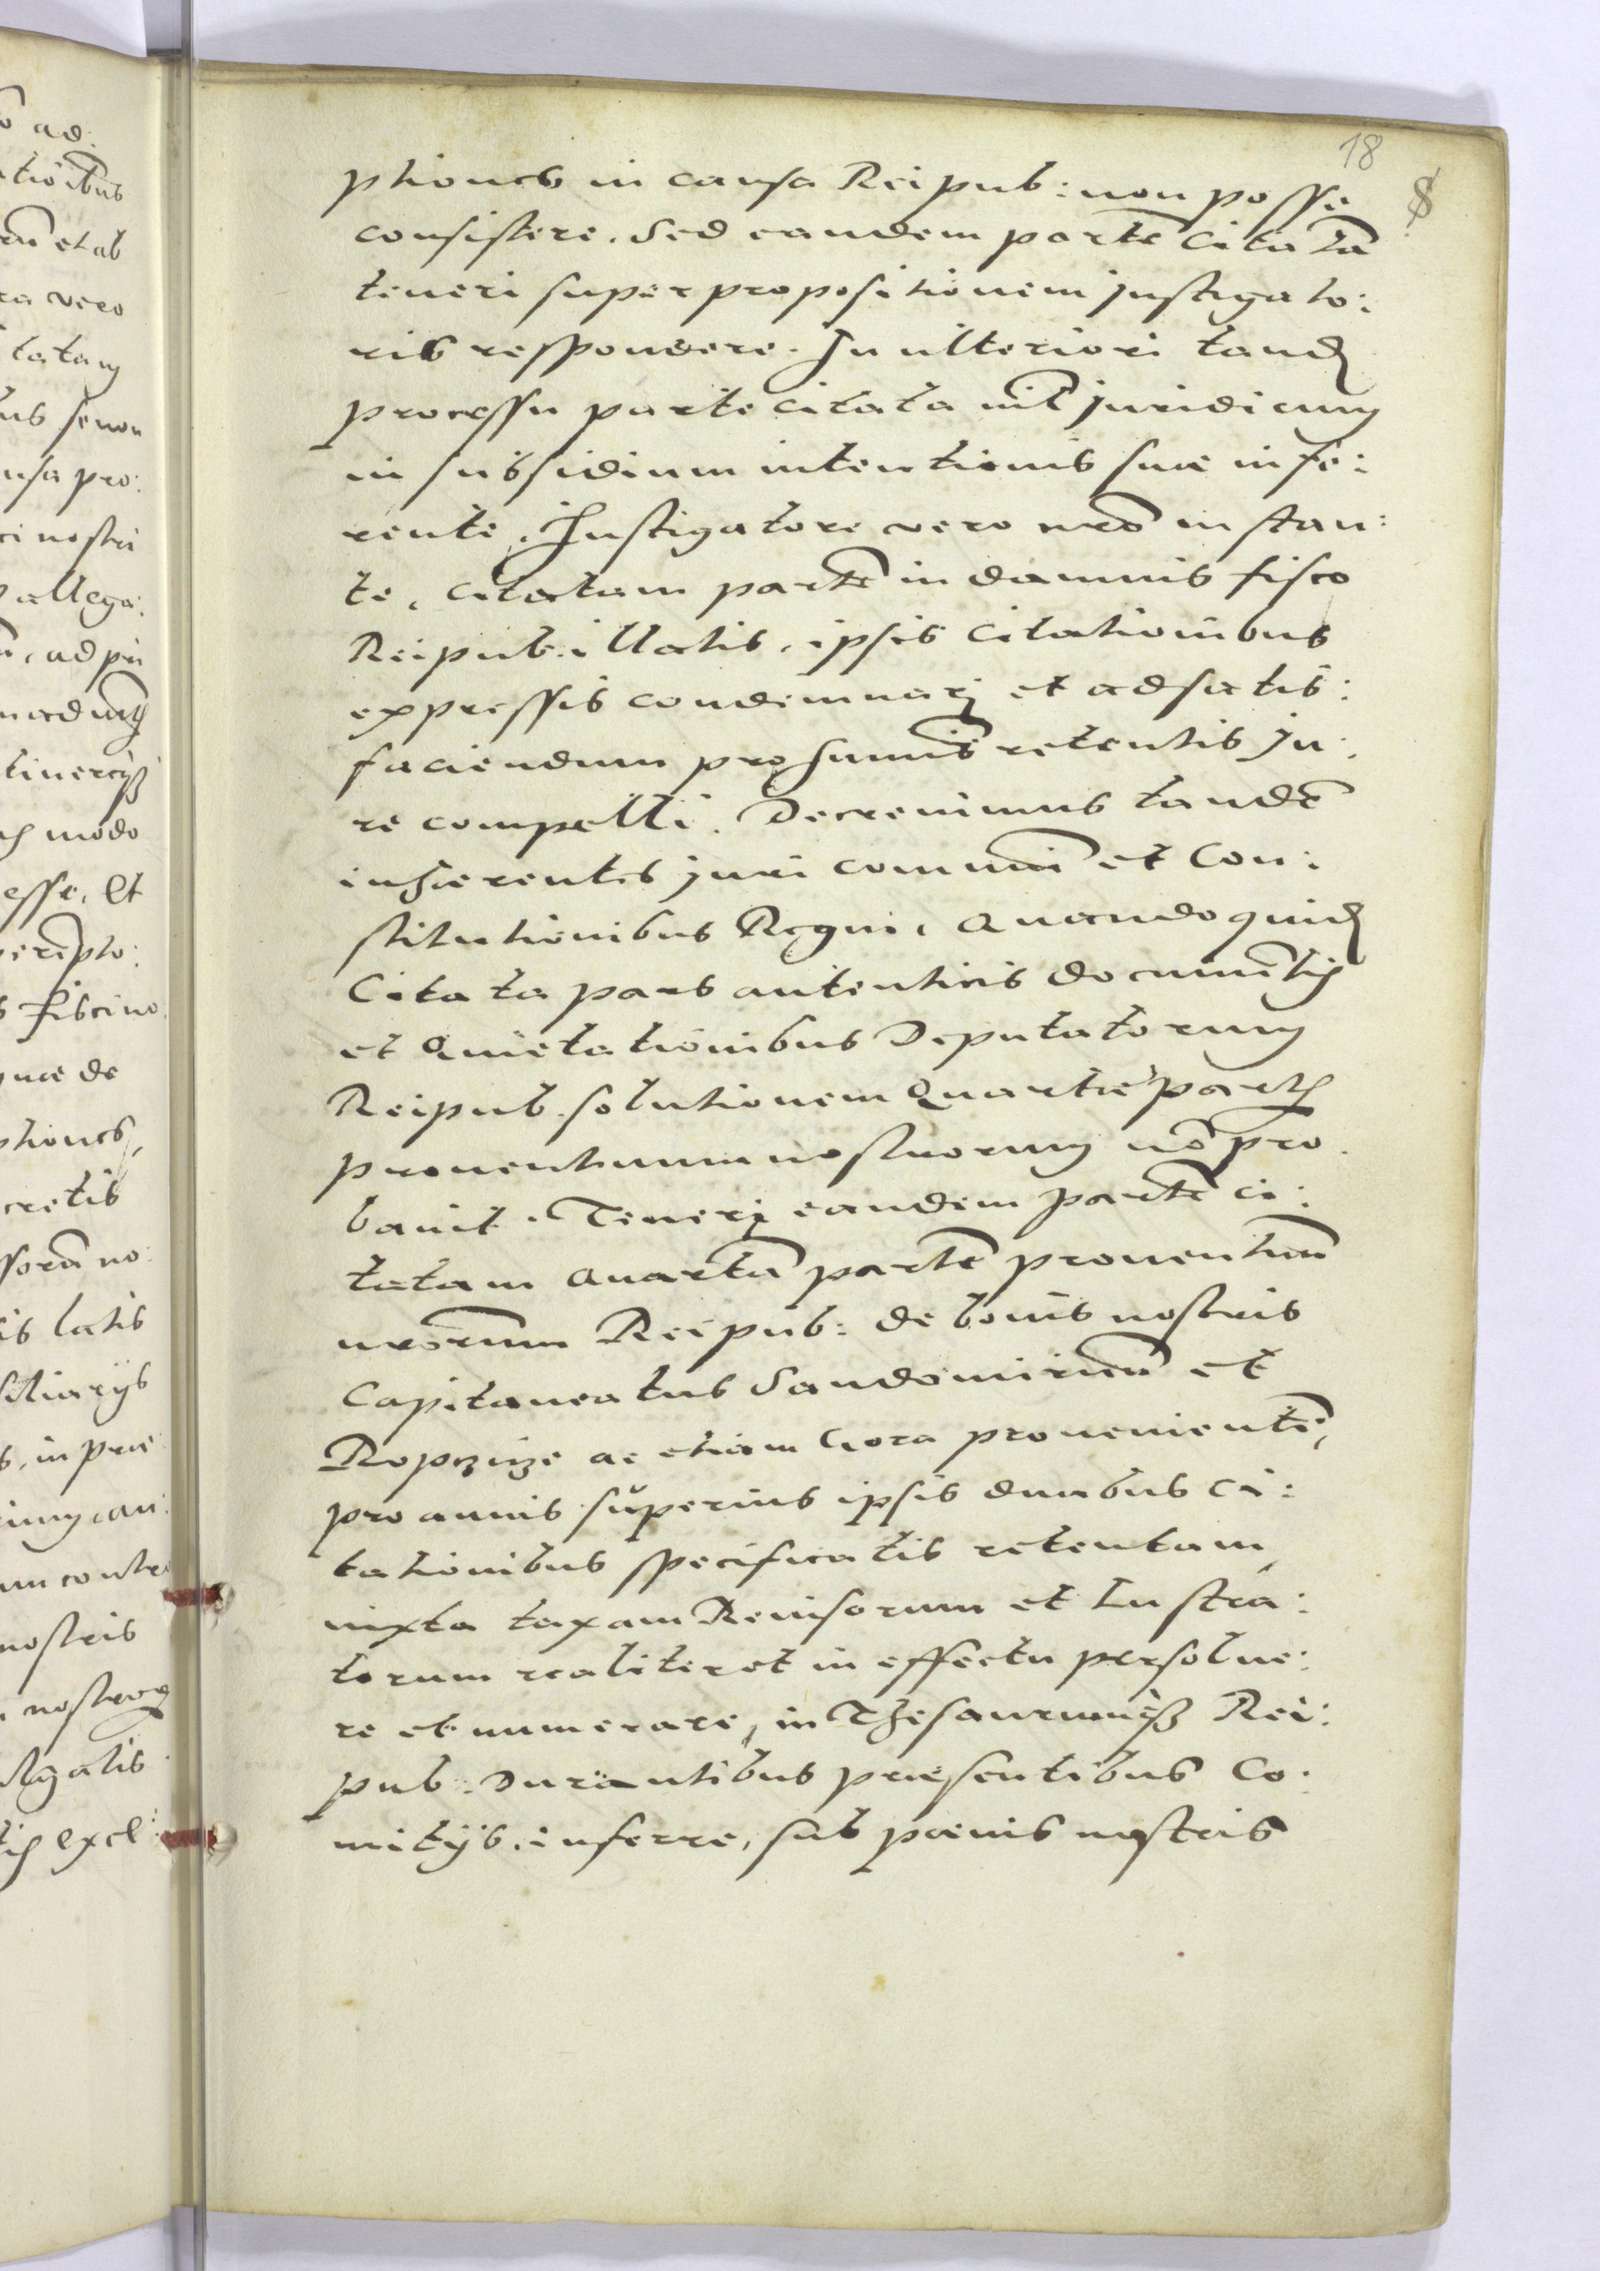 18
ptiones in causa Reipub: non posse
consistere. Sed eandem partē Citatā
teneri super propositionem Instigato:
ris respondere. In ulteriori tandē
processu parte citata nil juridicum
in subsidium intentionis suæ infe:
rente. Instigatore vero nrō instan:
te, citatam partē in damnis fisco
Reipub: illatis, ipsis citationibus
expressis condemnarj et ad satis:
faciendum pro sumis retentis Ju:
re compelli. Decrevimus tandē
inhærentes juri communi et Con:
stitutionibus Regni, Quandoquidē
Citata pars autenticis documentis
et Quietationibus Deputatorum
Reipub. solutionem Quartæ partis
prouentuum nostrorum nō pro
bauit. Tenerj eandem partē ci:
tatam Quartā partē prouentuū
nrōrum Reipub: de bonis nostris
Capitaneatus Sandomirien et
Ropczice ac etiam Gora prouenientē,
pro annis superius ipsis duabus ci:
tationibus specificatis retentam,
iuxta taxam Reuisorum et Lustra:
torum realiter et in effectu persolue:
re et numerare, in Thesaurumq Rei:
pub: Durantibus præsentibus Co:
mitijs, inferre, sub pœnis nostris